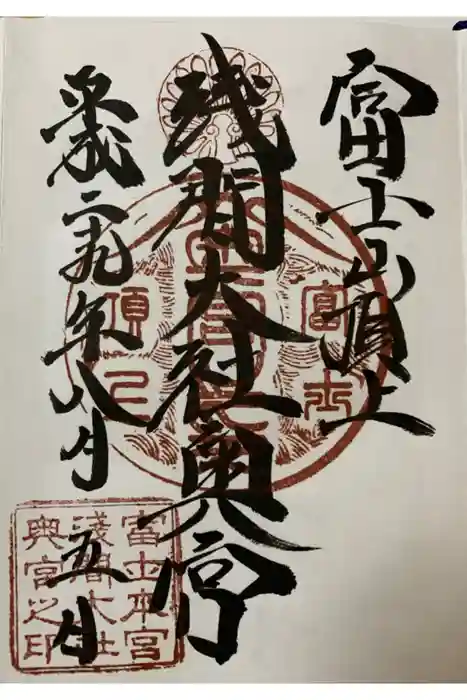 富士山頂上
浅間大社奥宮
平成二九年八月
五日
頂上
富士
富士本宮
淺間大社
奥宮之印